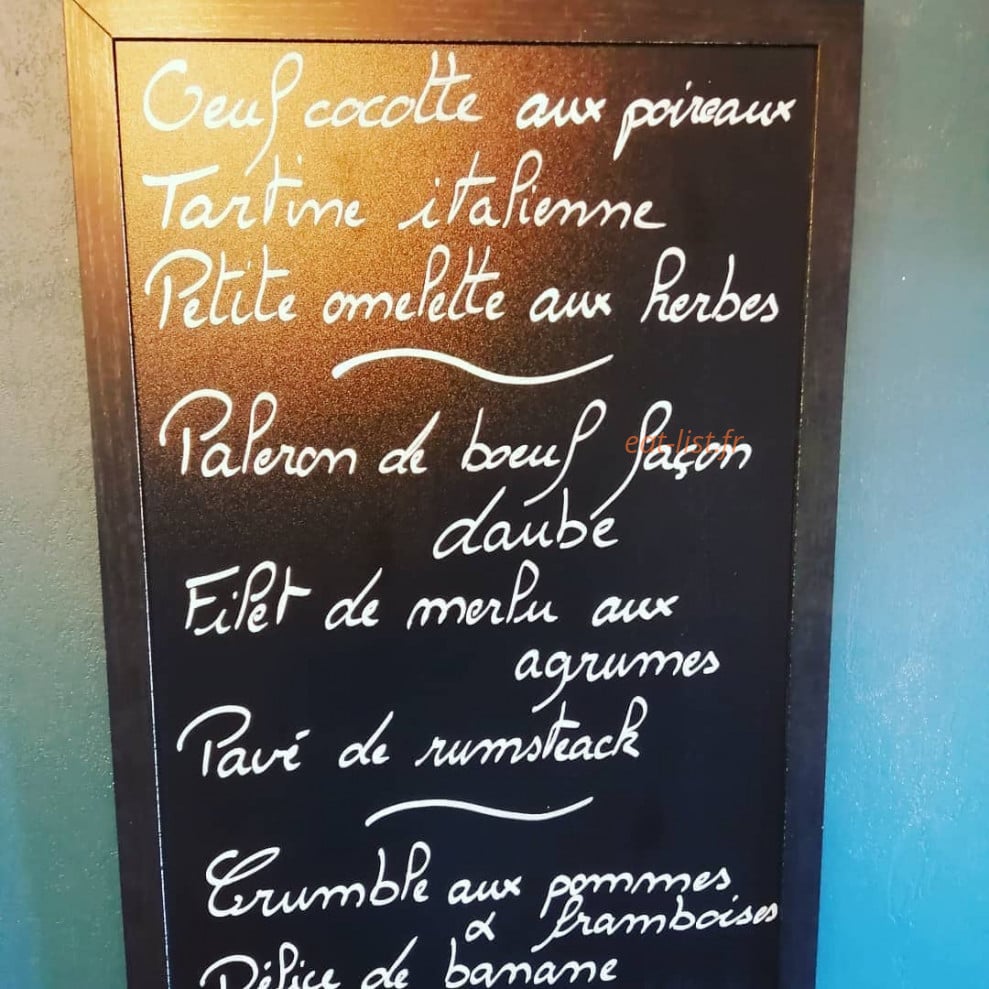 Oeuf cocotte aux poireaux
Tartine italienne
Petite omelette aux herbes
Paleron de boeuf façon
eat-list.fr
daube
Filet de merlu aux
agrumes
Pavé de rumsteack
Crumble aux pommes
& framboises
Délice de banane